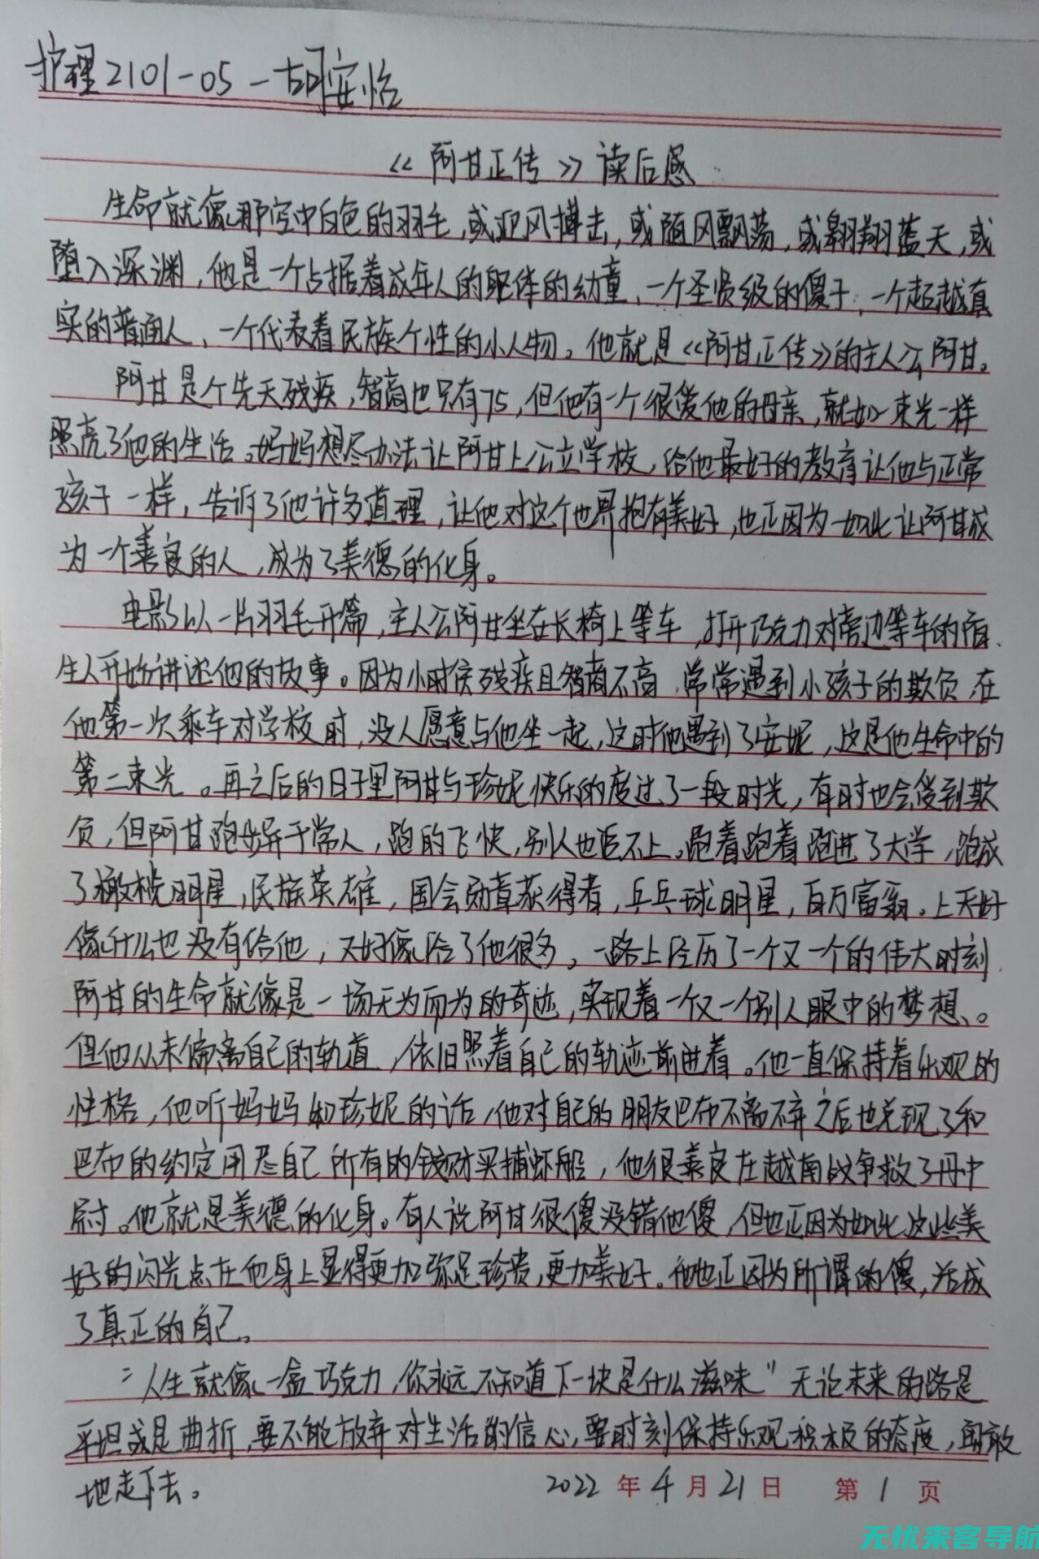 护理2101-05-胡安怡
《阿甘正传》读后感
生命就像那空中白色的羽毛,或迎风搏击,或随风飘荡,或翱翔蓝天,或
堕入深渊,他是一个占据着成年人的躯体的幼童、一个圣贤级的傻子、一个超越真
实的普通人、一个代表着民族个性的小人物。他就是《阿甘正传》的主人公阿甘。
阿甘是个先天残疾,智商也只有75,但他有一个很爱他的母亲,就如一束光一样
照亮了他的生活。妈妈想尽办法让阿甘上公立学校,给他最好的教育让他与正常
孩子一样,告诉了他许多道理,让他对这个世界抱有美好,也正因为如此让阿甘成
为一个善良的人,成为了美德的化身。
电影以一片羽毛开篇,主人公阿甘坐在长椅上等车,打开巧克力对旁边等车的陌
生人开始讲述他的故事。因为小时侯残疾且智商不高,常常遇到小孩子的欺负,在
他第一次乘车对学校时,没人愿意与他坐一起,这时他遇到了安妮,这是他生命中的
第二束光。再之后的日子里阿甘与珍妮快乐的度过了一段时光,有时也会受到欺
负,但阿甘跑步异于常人,跑的飞快,别人也追不上。跑着跑着跑进了大学,跑成
了橄榄明星,民族英雄,国会勋章获得者,乒乓球明星,百万富翁。上天好
像什么也没有给他,又好像给了他很多。一路上经历了一个又一个的伟大时刻,
阿甘的生命就像是一场无为而为的奇迹,实现着一个又一个别人眼中的梦想。
但他从未偏离自己的轨道,依旧照着自己的轨迹前进着。他一直保持着乐观的
性格,他听妈妈和珍妮的话,他对自己的朋友巴布不离不弃之后也兑现了和
巴布的约定用尽自己所有的钱财买捕虾船,他很善良在越南战争救了丹中
尉。他就是美德的化身。有人说阿甘很傻没错他傻,但也正因为如此这些美
好的闪光点在他身上显得更加弥足珍贵,更加美好。他也正因为所谓的傻,活成
了真正的自己。
"人生就像一盒巧克力,你永远不知道下一块是什么滋味"无论未来的路是
平坦或是曲折,要不能放弃对生活的信心,要时刻保持乐观积极的态度,勇敢
地走下去。
2022年4月21日 第1页
无忧来客导航